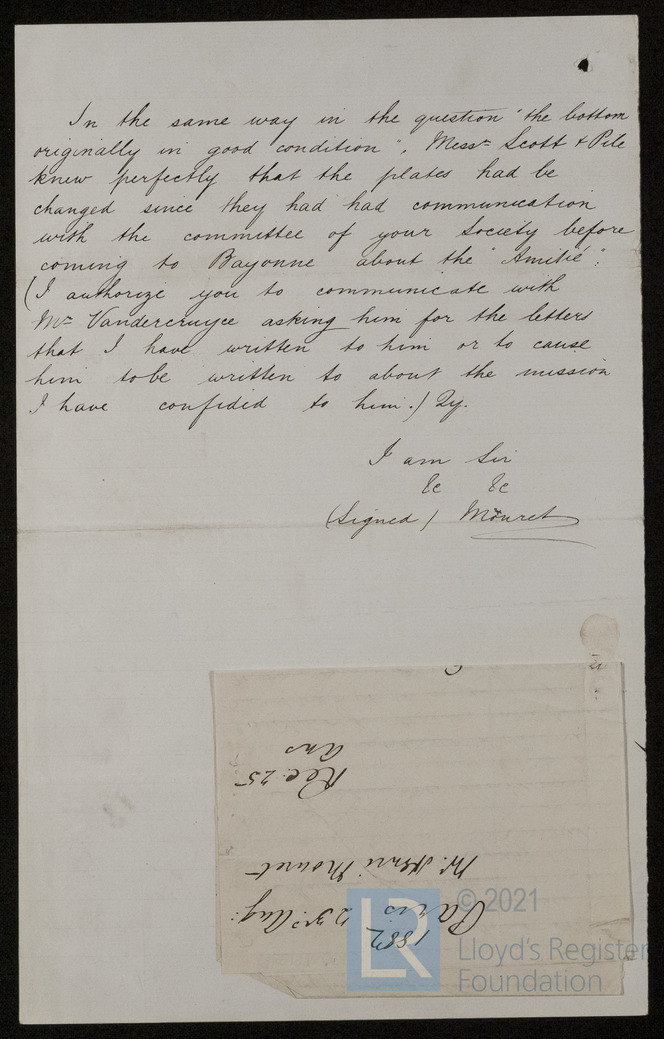 In the same way in the question "the bottom
originally in good condition", Messrs Scott & Pile
knew perfectly that the plates had be
changed since they had had communication
with the committee of your Society before
coming to Bayonne about the "Amitié".
(I authorize you to communicate with
Mr Vandercruyce asking him for the letters
that I have written to him or to cause
him to be written to about the mission
I have confided to him.) Qy.
I am Sir
&c &c
(Signed) Mouret
Paris 23rd Aug:
1882
Mr. Henri Mouret
Rec: 25
Ans
© 2021
LR
Lloyd's Register
Foundation